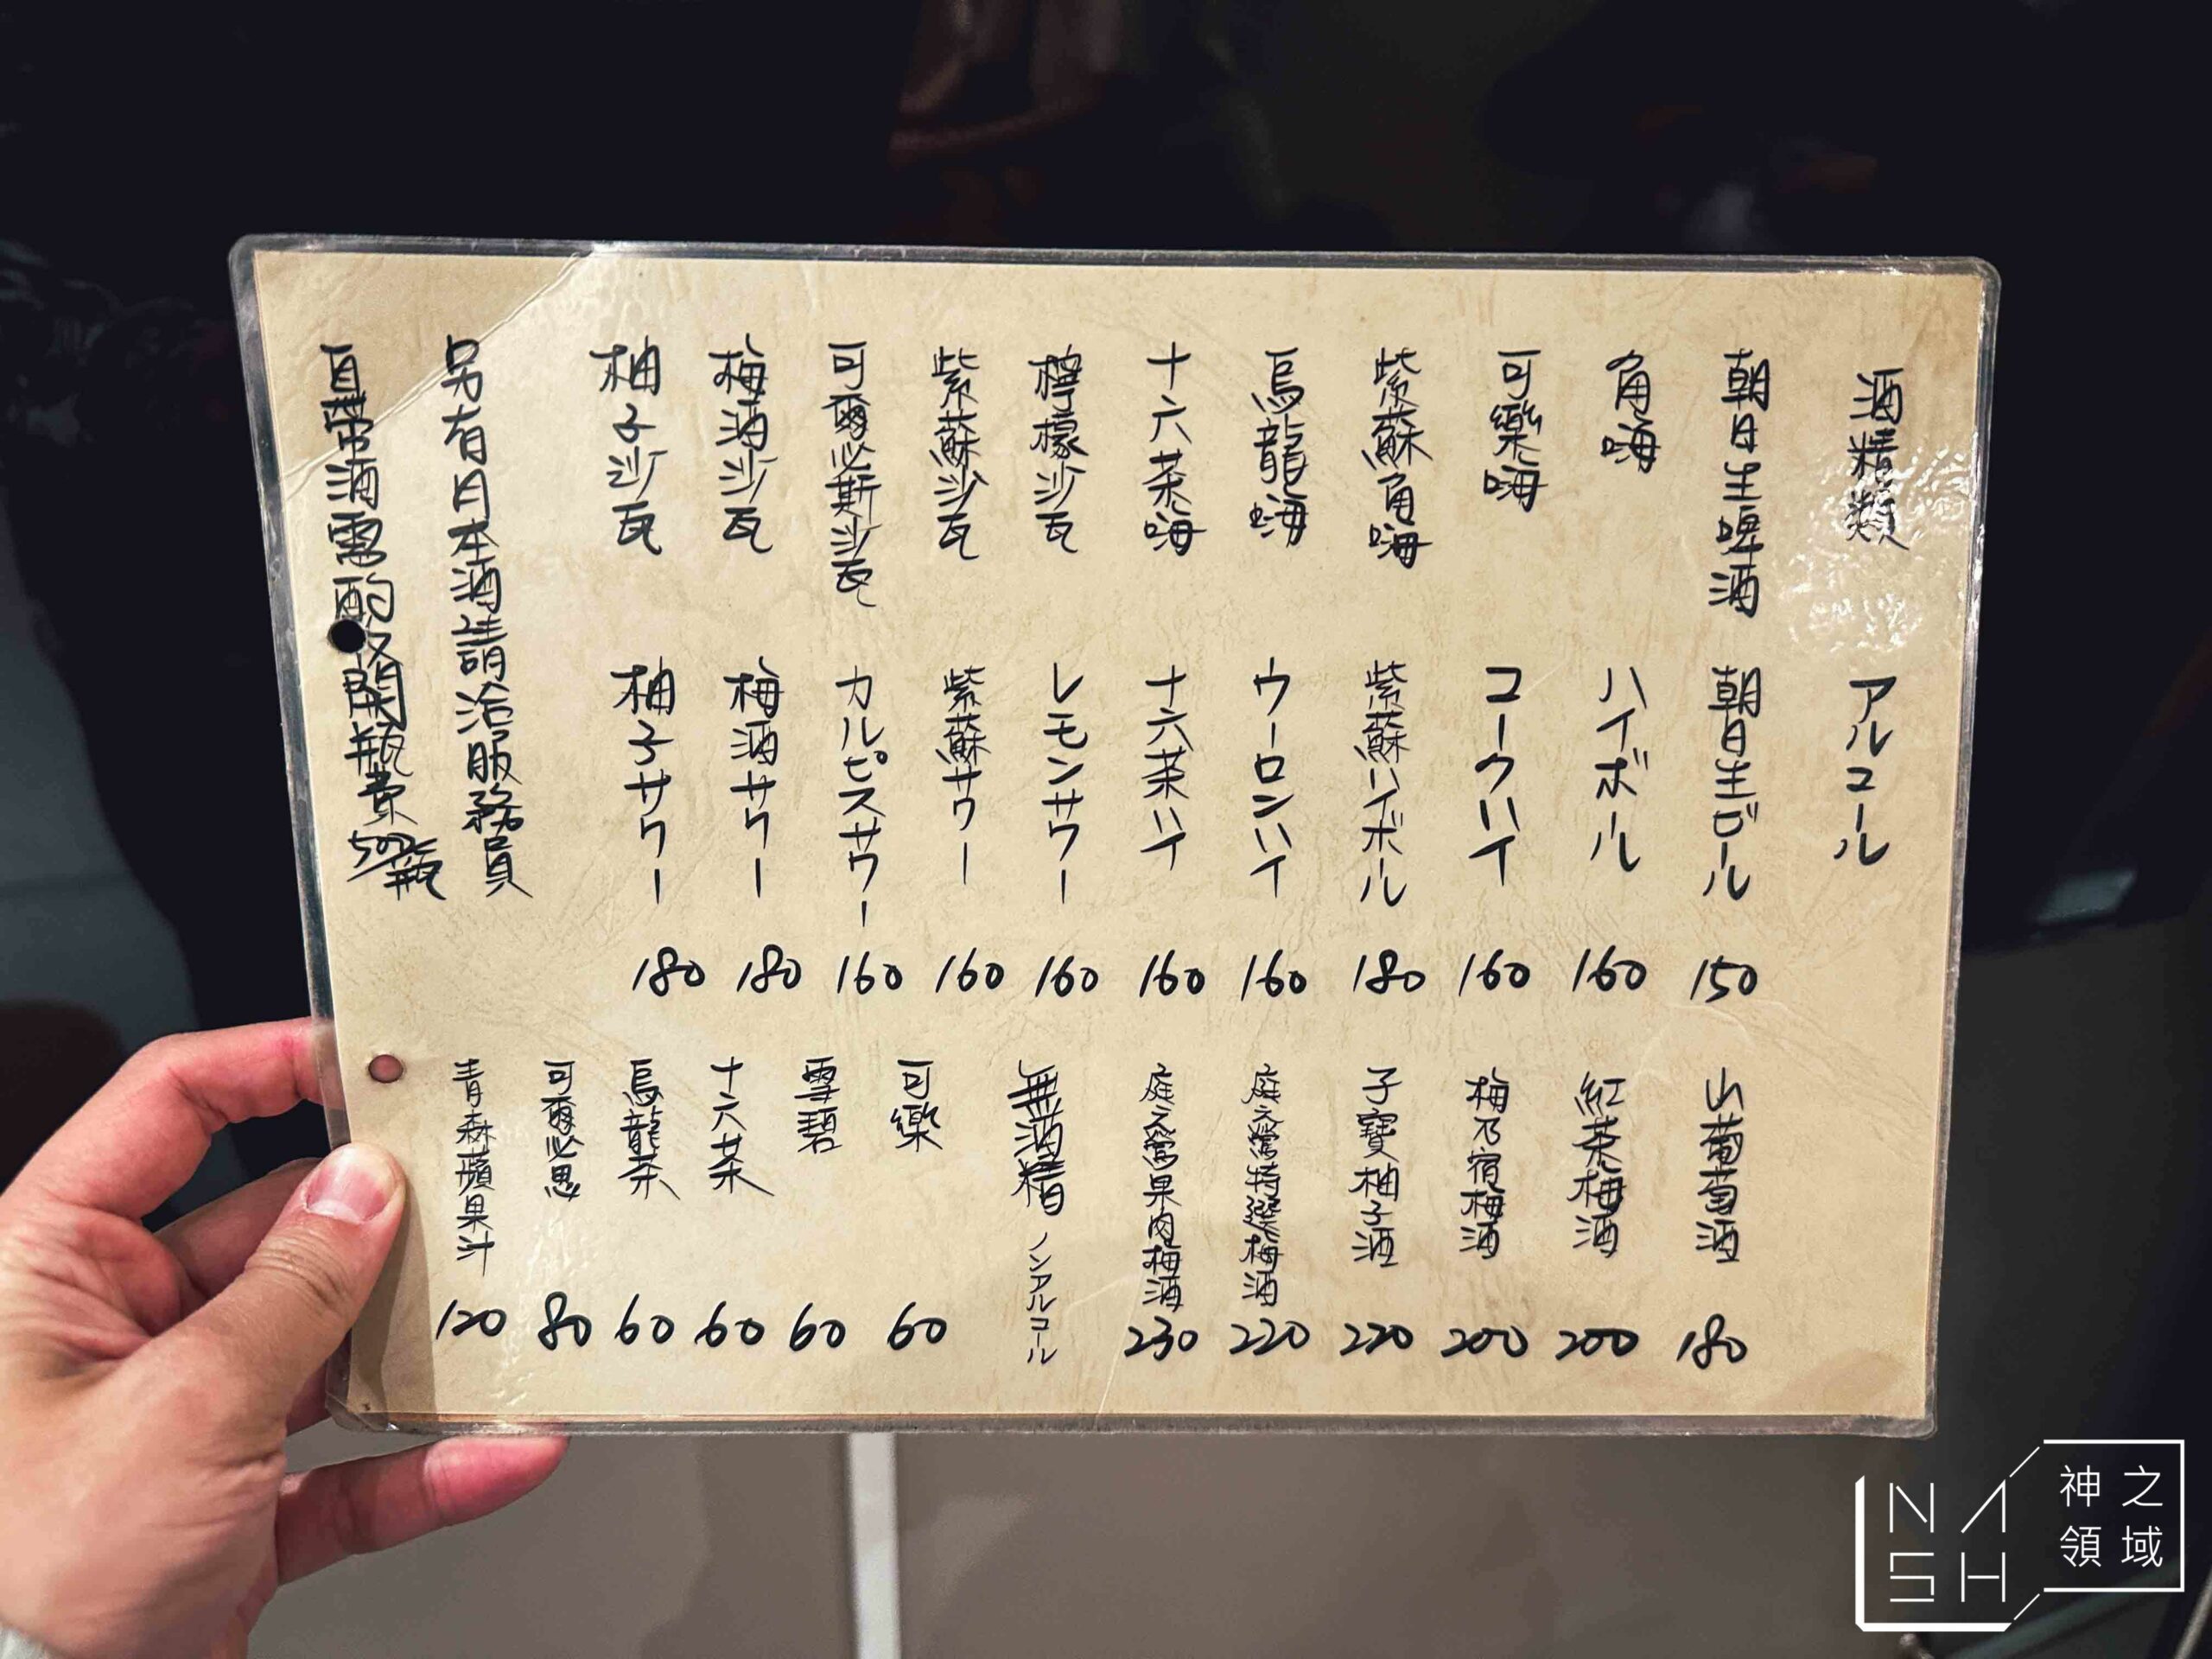 酒精類 アルコール
朝日生啤酒 朝日生ビール 150
角嗨 ハイボール 160
可樂嗨 コークハイ 160
紫蘇角嗨 紫蘇ハイボール 180
烏龍嗨 ウーロンハイ 160
十六茶嗨 十六茶ハイ 160
檸檬沙瓦 レモンサワー 160
紫蘇沙瓦 紫蘇サワー 160
可爾必斯沙瓦 カルピスサワー 160
梅酒沙瓦 梅酒サワー 180
柚子沙瓦 柚子サワー 180
另有日本酒請洽服務員
自帶酒需酌收開瓶費500/瓶
山葡萄酒 180
紅茶梅酒 200
梅乃宿梅酒 200
子寶柚子酒 220
庭之鶯特選梅酒 220
庭之鶯果肉梅酒 230
無酒精 ノンアルコール
可樂 60
雪碧 60
十六茶 60
烏龍茶 60
可爾必思 80
青森蘋果汁 120
NASH
神之領域